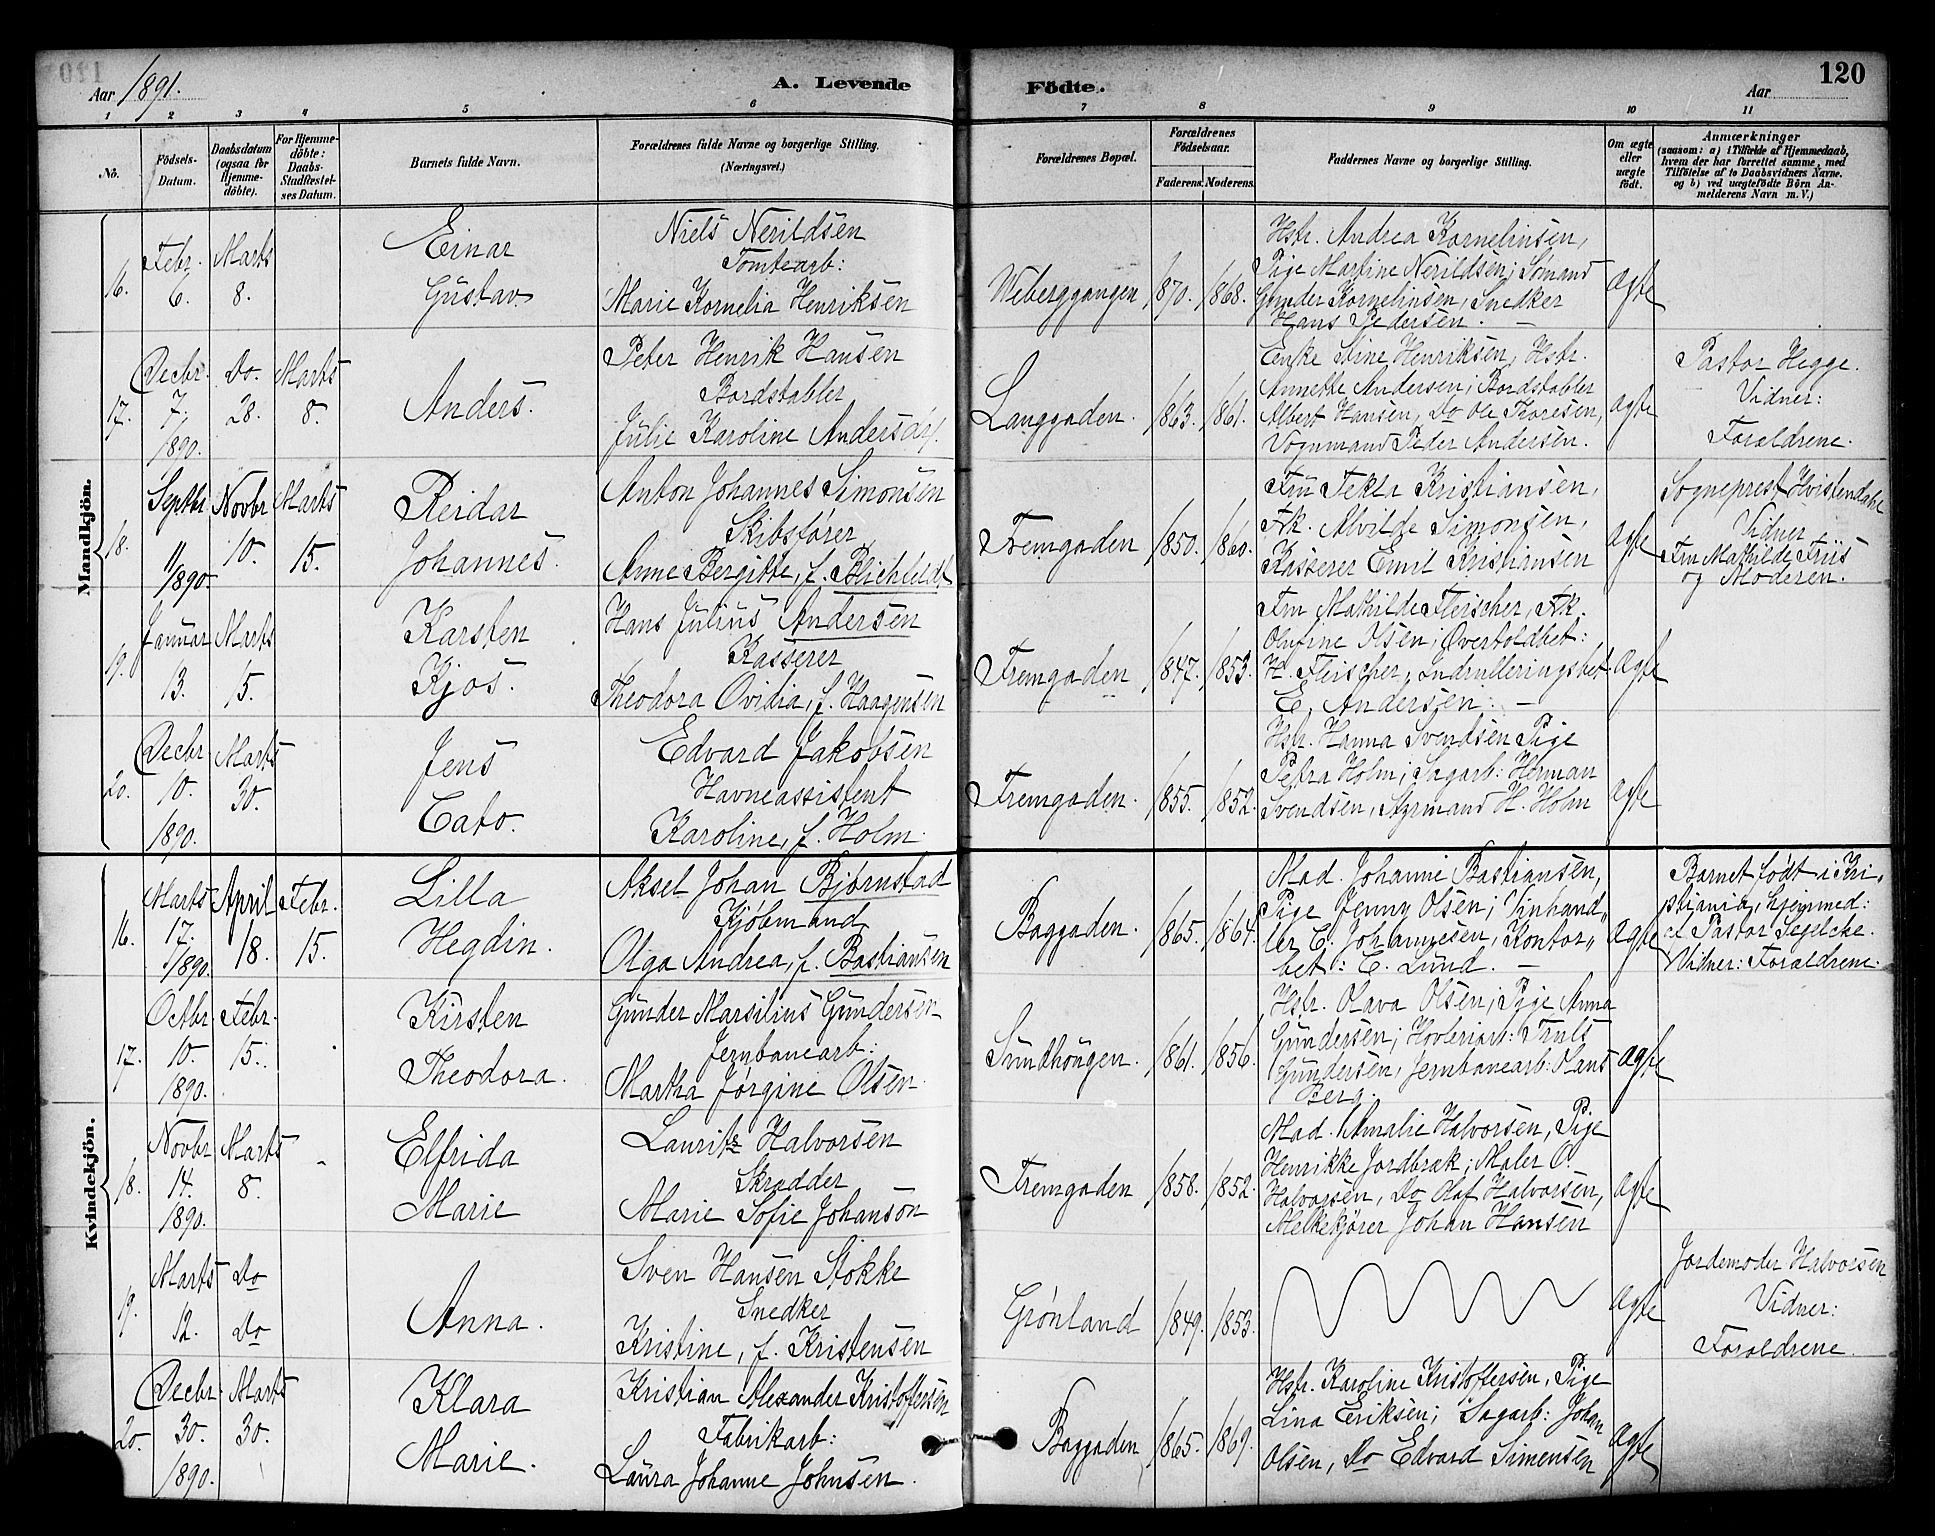 Aar 1891.
A. Levende
Födte.
Aar
120
1 2 3 4 5 6 7 8 9 10 11
Nö.
Födsels-Datum.
Daabsdatum (ogsaa for Hjemme-döbte).
For Hjemme-döbte: Daabs-Stadfæstel-ses Datum.
Barnets fulde Navn.
Forældrenes fulde Navne og borgerlige Stilling. (Næringsvei.)
Forældrenes Bopæl.
Forældrenes Födselsaar.
Faderens. Moderens.
Faddernes Navne og borgerlige Stilling.
Om ægte eller uægte födt.
Anmærkninger
(saasom: a) i Tilfælde af Hjemmedaab, hvem der har forrettet samme, med Tilföielse af to Daabsvidners Navne. og b) ved uægtefödte Börn An-melderens Navn m. V.)
Mandkjön.
16. Febr. 6. Marts 8.
Einar
Gustav
Niels Nerildsen
Tomtearb:
Marie Kornelia Henriksen
Weberggangen 1870. 1868.
Hstr. Andrea Kornelinsen,
Pige Martine Nerildsen; Sømand
Gunder Kornelinsen, Snedker
Hans Pedersen. —
ægte
17. Decbr. 7. 1890. Do. 28. Marts 8.
Anders.
Peter Henrik Hansen
Bordstabler
Julie Karoline Andersdr.
Langgaden. 1863. 1861.
Enke Stine Henriksen, Hstr.
Annette Andersen; Bordstabler
Albert Hansen, Do Ole Thoresen,
Vognmand Peder Andersen.
ægte
Pastor Hegge.
Vidner:
Forældrene.
18. Septbr 11/1890 Novbr 10. Marts 15.
Reidar
Johannes.
Anton Johannes Simonsen
Skibsfører
Anne Bergitte, f. Blichfeldt
Fremgaden 1850. 1860.
Fru Tekla Kristiansen,
Frk. Alvilde Simonsen,
Kasserer Emil Kristiansen
ægte
Sogneprest Hvistendahl
Vidner
Fru Mathilde Friis
og Moderen.
19. Januar 13. Marts 5.
Karsten
Kjøs.
Hans Julius Andersen
Kasserer
Theodora Ovidia, f. Haagensen
Fremgaden 1847. 1853.
Fru Mathilde Fleischer, Frk.
Olufine Olsen; Overtoldbet:
H. Fleischer, Indrulleringsbet
E. Andersen. —
ægte
20. Decbr 10. 1890. Marts 30.
Jens
Cato.
Edvard Jakobsen
Havneassistent
Karoline, f. Holm.
Fremgaden. 1855. 1852.
Hstr. Hanna Svendsen Pige
Petra Holm; Sagarb: Herman
Svendsen, Styrmand H. Holm
ægte
Kvindekjön.
16. Marts 17. 1890. April 18. Febr. 15.
Lilla
Hegdin.
Aksel Johan Bjørnstad
Kjøbmand
Olga Andrea, f. Bastiansen
Baggaden. 1865. 1864.
Mad. Johanne Bastiansen,
Pige Jenny Olsen; Vinhand„
ler C. Johannesen, Kontor„
bet: C. Lund. —
ægte
Barnet født i Kri„
stiania, hjemmed:
af Pastor Jegelcke.
Vidner: Forældrene.
17. Octbr 10. 1890. Febr. 15.
Kirsten
Theodora.
Gunder Marsilius Gundersen
Jernbanearb:
Martha Jørgine Olsen.
Sundhougen. 1861. 1856.
Hstr. Olava Olsen; Pige Anna
Gundersen; Hovleriarb: Truls
Gundersen, Jernbanearb: Hans
Berg.
ægte
18. Novbr 14. 1890. Marts 8.
Elfrida
Marie
Lauritz Halvorsen
Skrædder
Marie Sofie Johanson
Fremgaden 1858. 1852.
Mad. Amalie Halvorsen, Pige
Henrikke Jordbræk; Maler O.
Halvorsen, Do Olaf Halvorsen,
Melkekjører Johan Hansen
ægte
19. Marts 12. Do Do
Anna.
Sven Hansen Stokke
Snedker
Kristine, f. Kristensen
Grønland 1849. 1853.
ægte
Jordemoder Halvorsen
Vidner:
Forældrene.
20. Decbr 30. 1890. Marts 30.
Klara
Marie.
Kristian Alexander Kristoffersen
Fabrikarb:
Laura Johanne Johnsen.
Baggaden 1865. 1869.
Hstr. Karoline Kristoffersen, Pige
Lina Eriksen; Sagarb: Johan
Olsen, Do Edvard Simensen
ægte